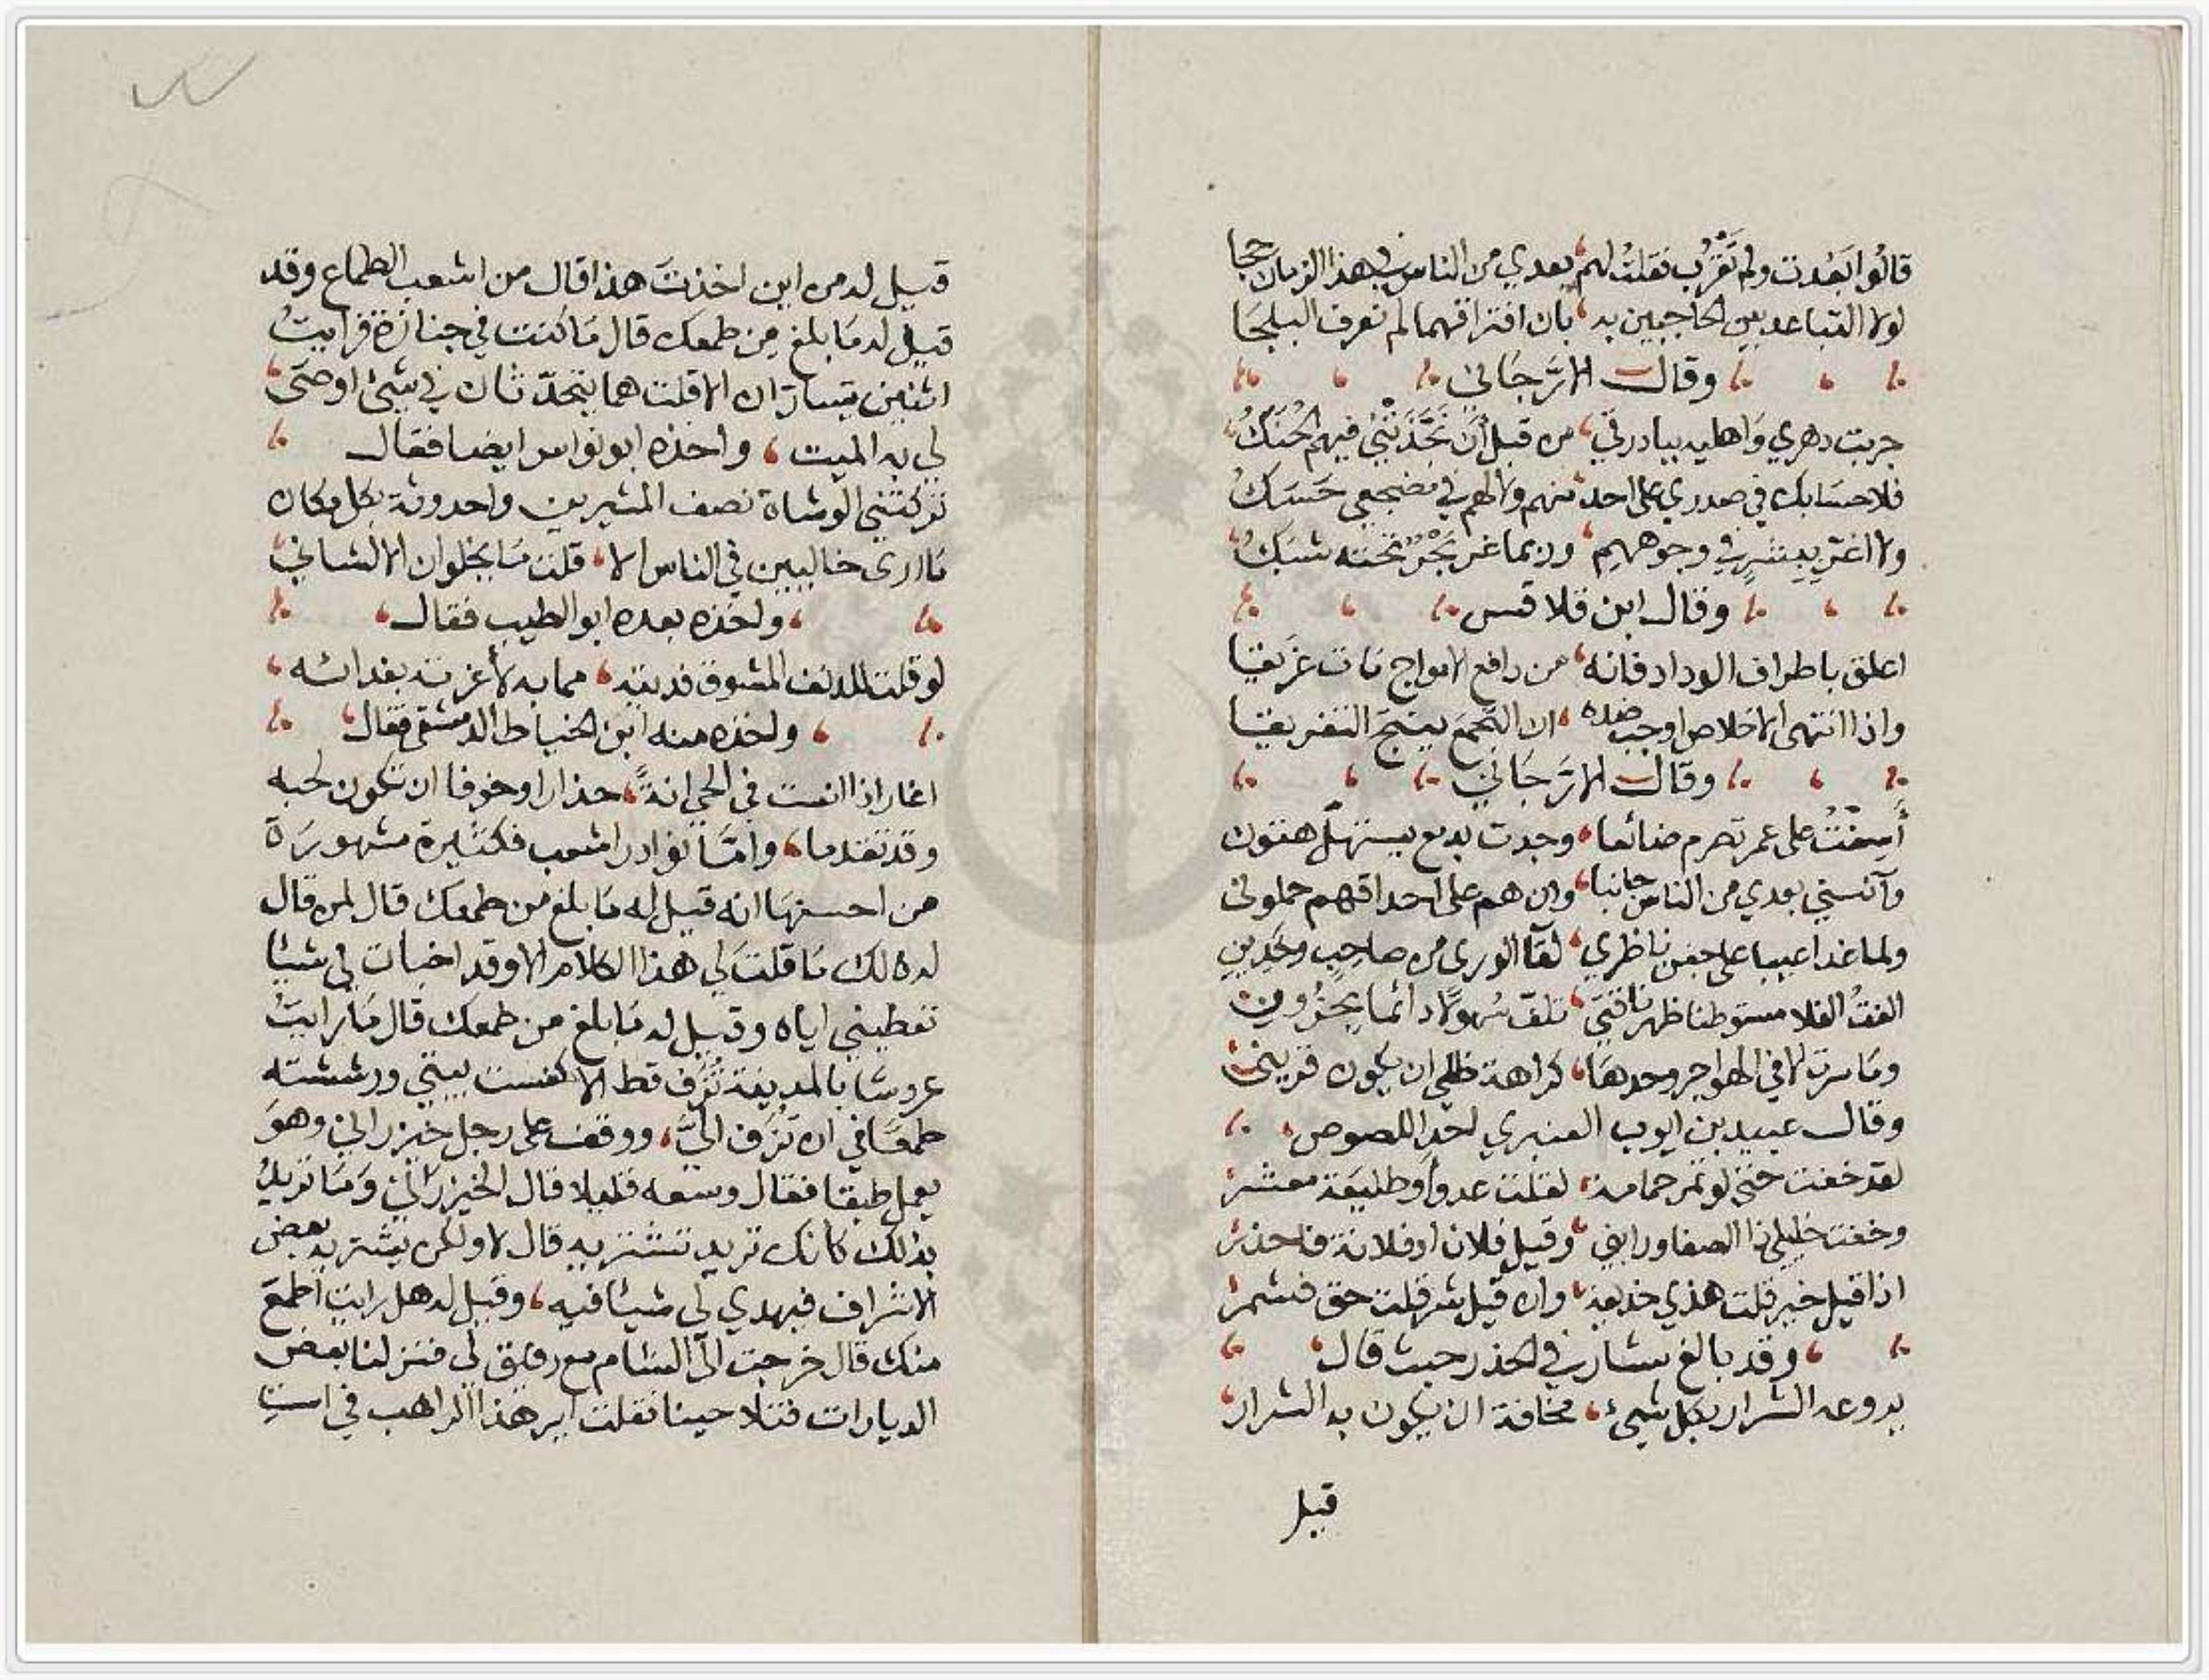 قالوا ابعدت ولم تقرب فقلت لهم، بعدي من الناس في هذا الزمان حجا
لولا التباعد بين الحاجبين به، بان افتراقهما لم نعرف البلجا
وقال الارجاني
جربت دهري واهليه ببادرتي، من قبل أن تجذني فيهم الحنك
فلا حسابك في صدري على احد، منهم ولا لهم في مضجعي حسك
ولا اغتر ببشر في وجوههم، وربما غر تحته شبك
وقال ابن قلاقس
اعلق باطراف الوداد فانه، من دافع الامواج مات غريقا
واذا انتهى الاخلاص اوجب ضده، ان التجمع ينتج التفريقا
وقال الارجاني
أسفت على عمر تصرم ضائعا، وجدت بدمع يستهل هتون
وآنسني بعدي من الناس جانبا، وان هم على احداقهم حملوني
ولما غدا عبيا على جفن ناظري، لقا الورى من صاحب وخدين
الفت الفلا مستوطنا ظهر ناقتي، تلف سهولا دائما بحزون
وما سرت الا في الهواجر وحدها، كراهة ظلي ان يكون قريني
وقال عبيد بن ايوب العنبري احد اللصوص
لقد خفت حتى لو تمر حمامة، لقلت عدو أو طليعة معشر
وخفت خليلي ذا الصفا ورابني، وقيل فلان او فلانة فاحذر
اذا قيل خير قلت هذي خديعة، وان قيل شر قلت حق فشمر
وقد بالغ بشار في الحذر حيث قال
يروعه السرار بكل شيئ، مخافة ان يكون به السرار
قيل
قيل له من اين اخذت هذا قال من اشعب الطماع وقد
قيل له ما بلغ من طمعك قال ما كنت في جنازة فرايت
اثنين يتساران الا قلت هما يتحدثان في شيئ اوصى
لي به الميت، واخذه ابو نواس ايضا فقال
تركتني الوشاة نصف المشيرين واحدوثة بكل مكان
ما ارى خاليين في الناس الا، قلت ما يخلوان الا لشاني
واخذه بعده ابو الطيب فقال
لو قلت للدنف المشوق فديته، مما به لأغرته بفدائه
واخذه منه ابن الخياط الدمشقي فقال
اغار اذا انست في الحي انة، حذارا وخوفا ان تكون لحبه
وقد تقدما، وامّا نوادر اشعب فكثيرة مشهورة
من احسنها انه قيل له ما بلغ من طمعك قال لمن قال
له ذلك ما قلت لي هذا الكلام الا وقد اخبأت لي شيئا
تعطيني اياه وقيل له ما بلغ من طمعك قال ما رايت
عروسا بالمدينة تزف قط الا كنست بيتي ورششته
طمعا في ان تزف اليّ، ووقف على رجل خيزراني وهو
يعمل طبقا فقال وسعه قليلا قال الخيزراني وما تريد
بذلك كأنك تريد تشتريه قال لا ولكن يشتريه بعض
الاشراف فيهدي لي شيئا فيه، وقيل له هل رايت اطمع
منك قال خرجت الى الشام مع رفيق لي فنزلنا بعض
الديارات فتلاحينا فقلت اير هذا الراهب في است